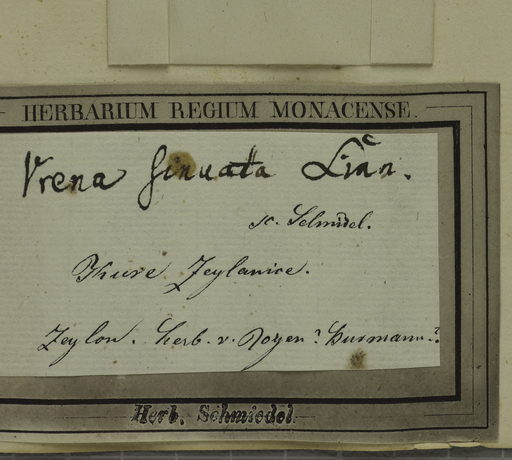 HERBARIUM REGIUM MONACENSE.
Vrena sinuata Linn.
sc. Schmidel.
Zeylanice.
Zeylon. herb. v. Royen? Burmann?
Herb. Schmiedel.